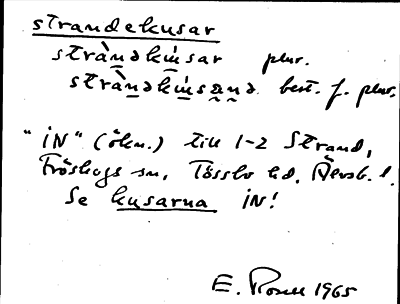 strandekusar
stràn̠dkú̠sar plur.
stràn̠dkú̠sa̠n̠d best. f. plur.
"iN" (ökn.) till 1-2 Strand,
Fröskogs sn, Tössbo hd, Älvsb. l.
Se kusarna iN!
E. Rosell 1965